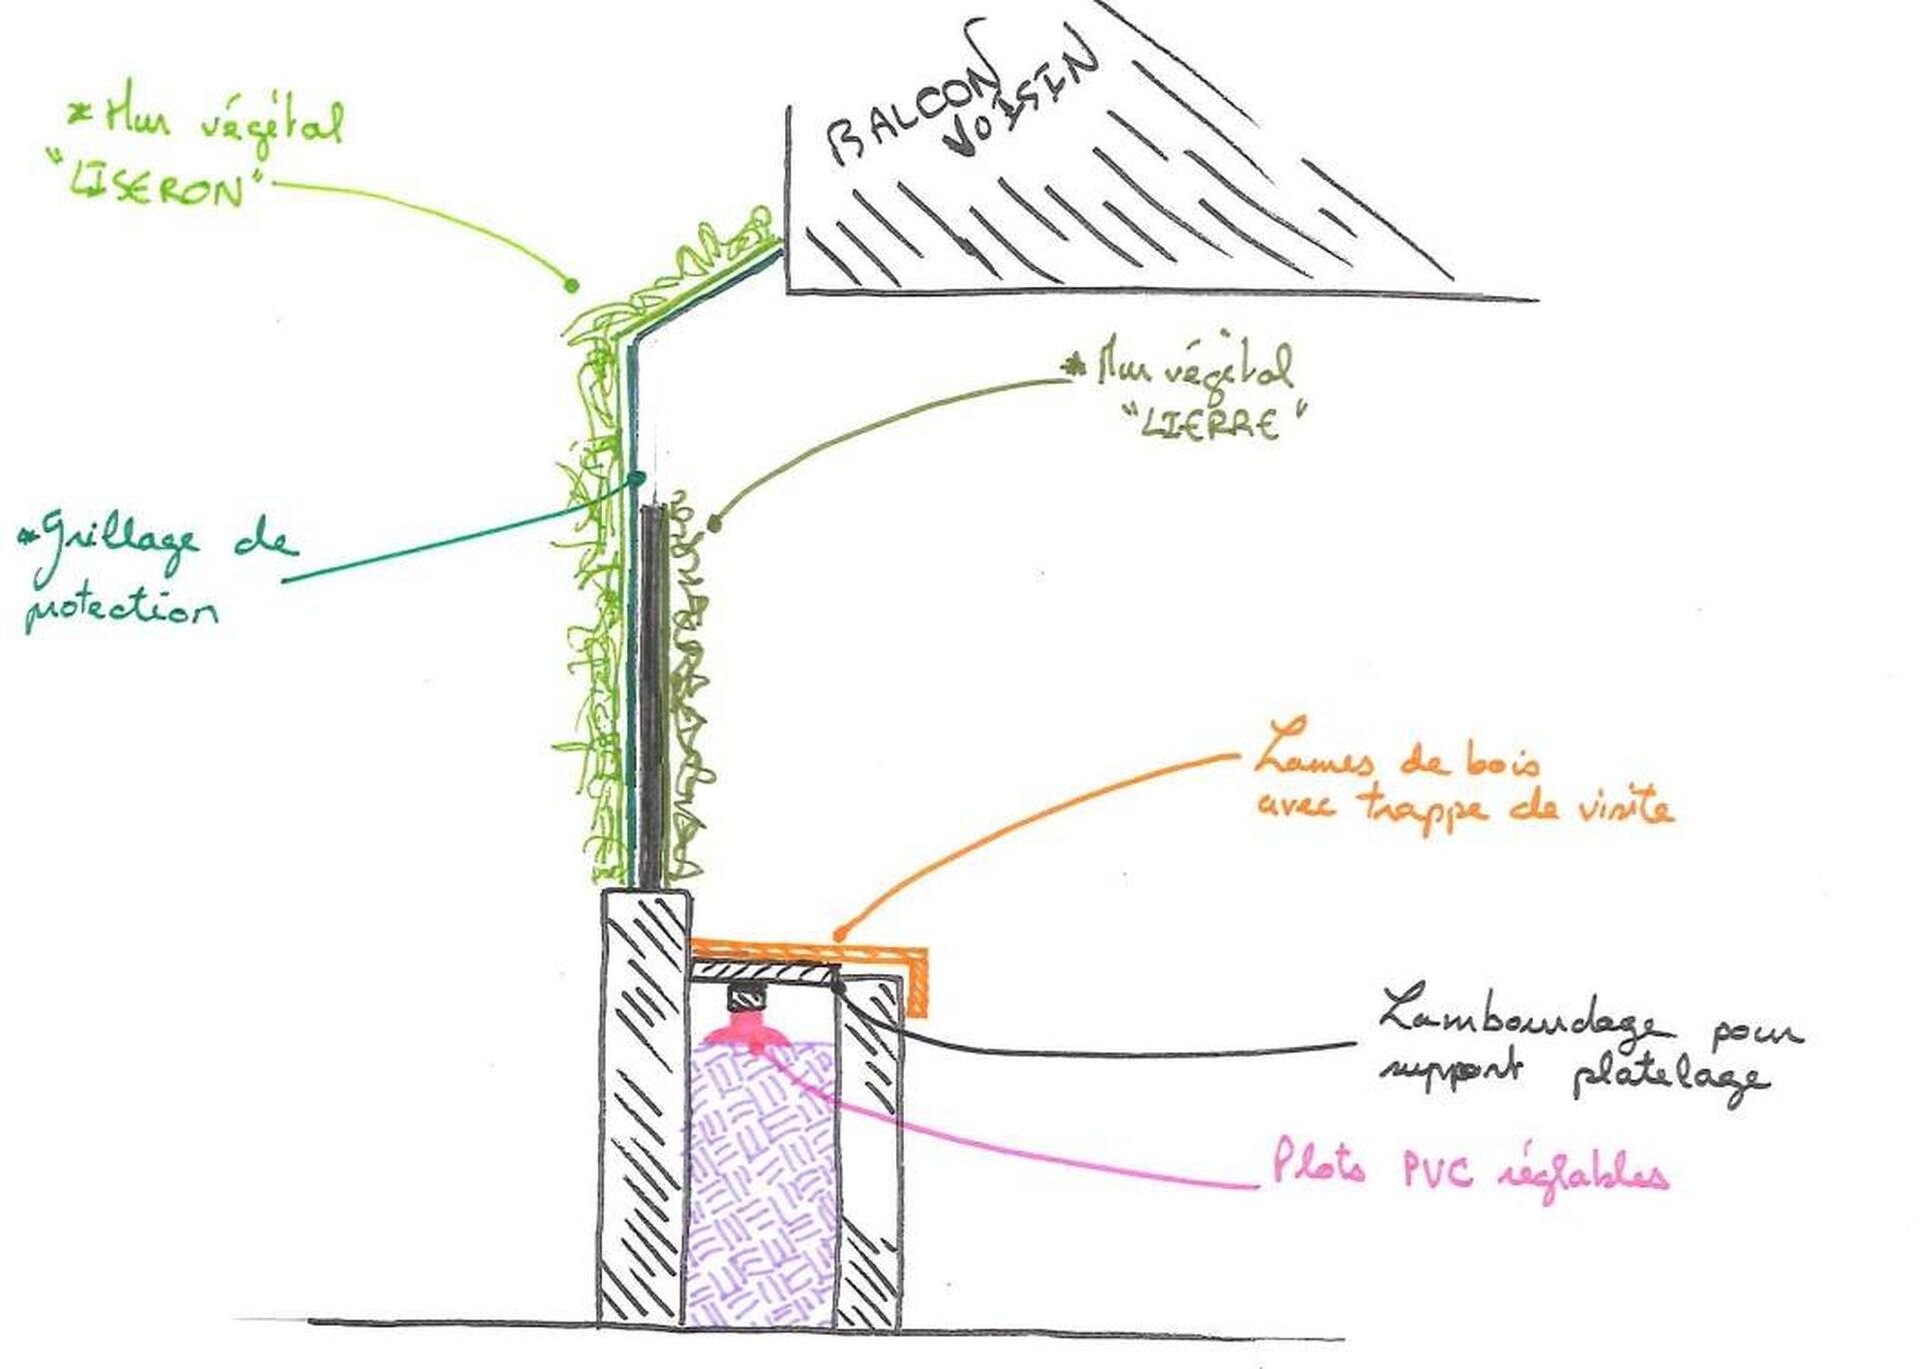 BALCON
VOISIN
* Mur végétal
"LISERON"
* Mur végétal
"LIERRE"
*Grillage de
protection
Lames de bois
avec trappe de visite
Lambourdage pour
support platelage
Plots PVC réglables